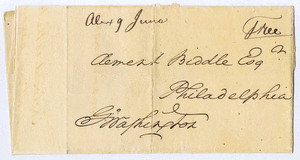 Alex 9 June
Free
Clement Biddle Esqr
Philadelphia
Go Washington